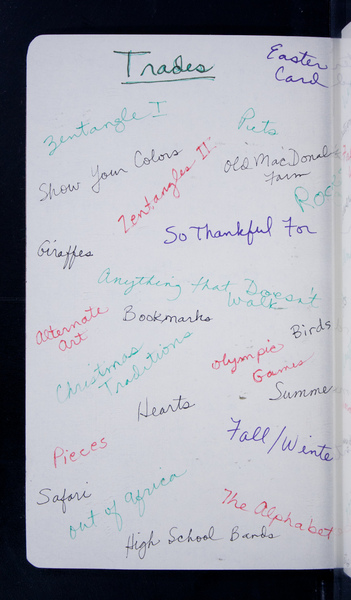 Trades
Easter
Card
Zentangle I
Pets
Show Your Colors
Zentangles II
Old MacDonald
Farm
So Thankful For
Giraffes
Anything that Doesn't
Walk
Alternate
Art
Bookmarks
Birds
Christmas
Traditions
Olympic
Games
Hearts
Summe
Fall/Winte
Pieces
Safari
Out of Africa
The Alphabet
High School Bands